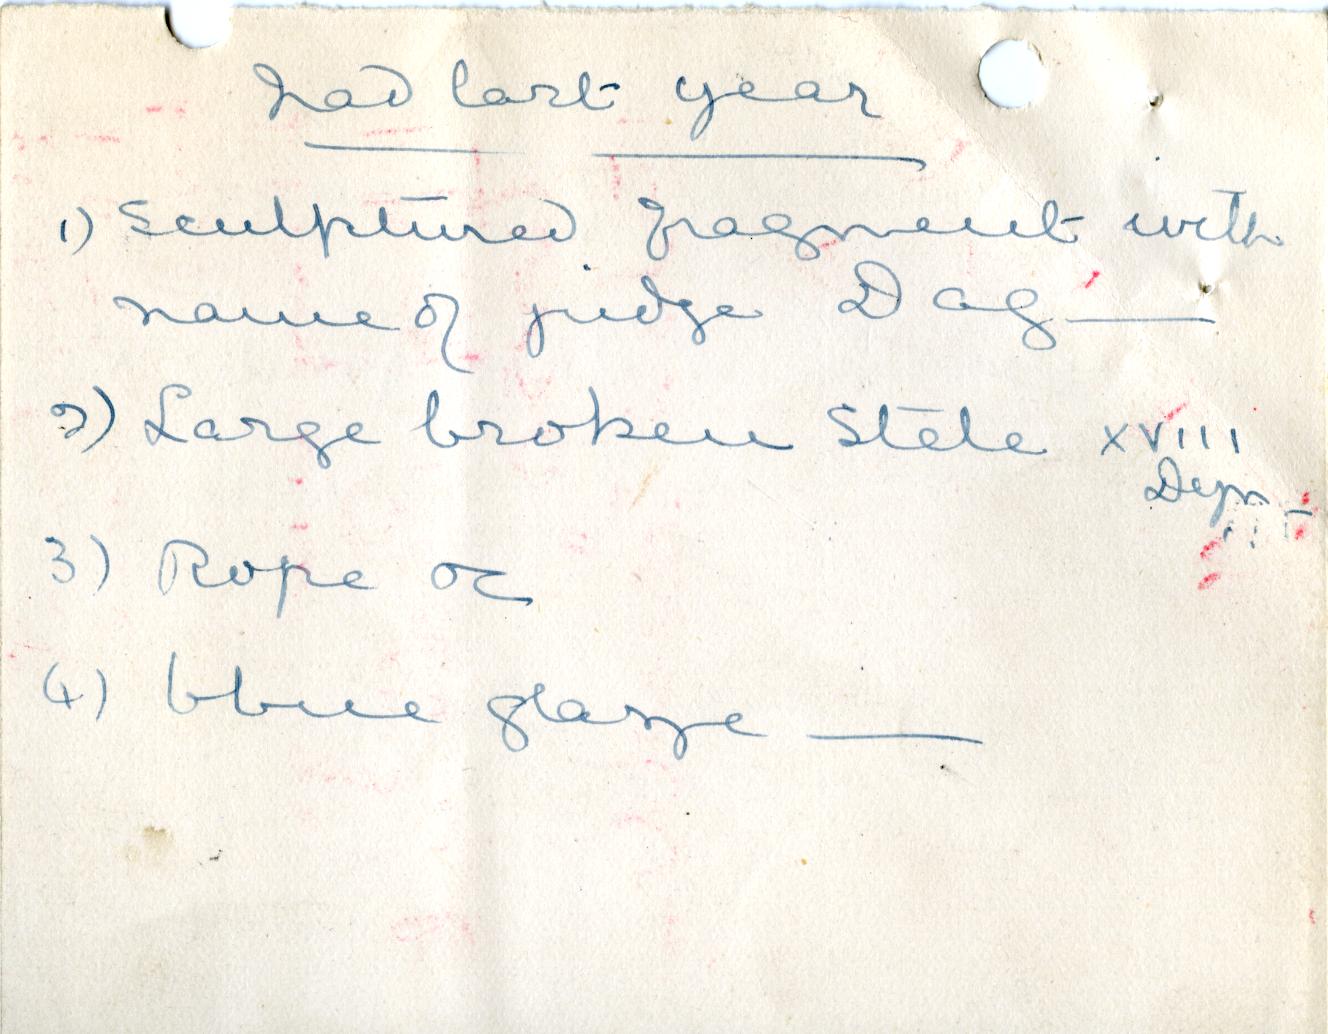 had last year
1) Sculptured fragment with
name of judge Dag
2) Large broken Stele XVIII
Dyn
3) Rope oc
4) blue glaze